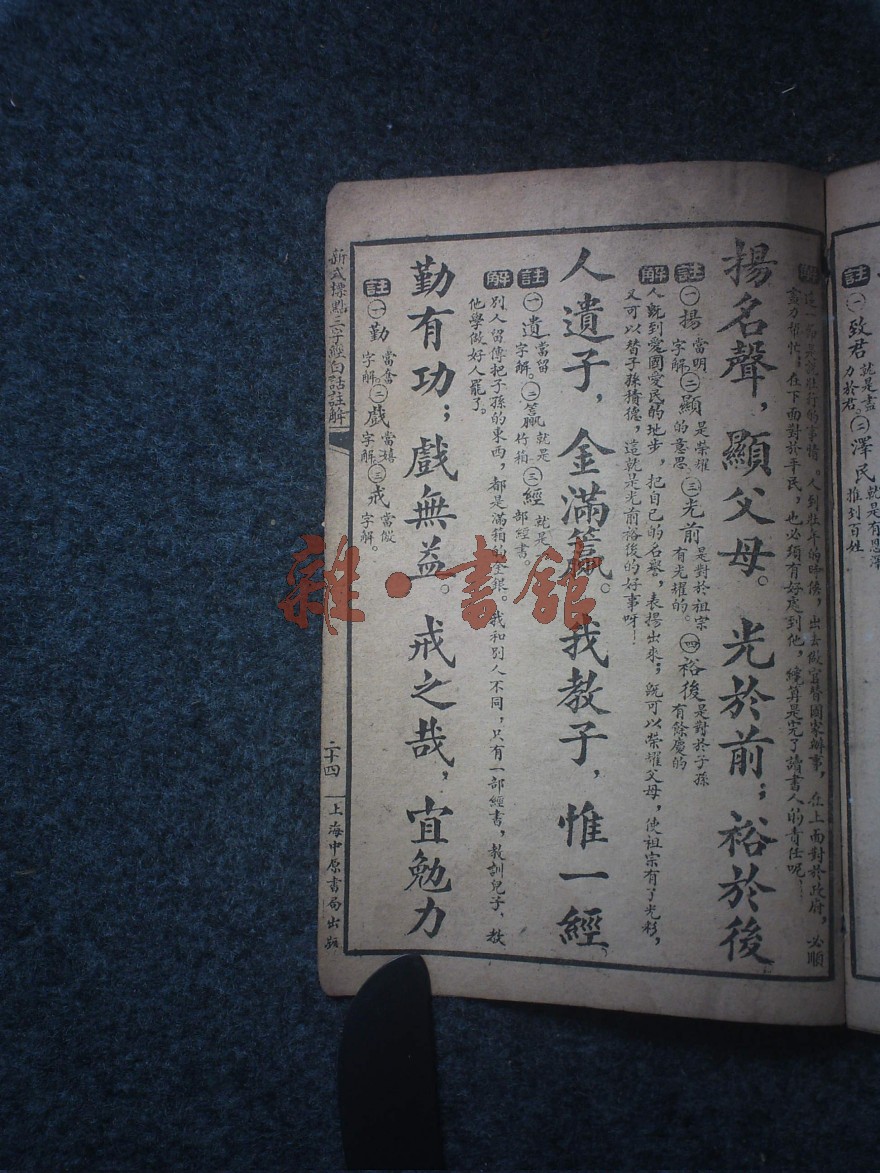 註㊀致君就是盡力於君。㊁澤民就是有恩澤推到百姓
解這一節是說壯行的事情。人到壯年的時候，出去做官替國家辦事，在上面對於政府，必順
盡力帮忙；在下面對於平民，也必須有好處到他，纔算是完了讀書人的責任呢！
揚名聲，顯父母。光於前；裕於後
註㊀揚當明字解㊁顯是榮耀的意思㊂光前是對於祖宗有光耀的。㊃裕後是對於子孫有餘慶的
解人既到愛國愛民的地步，把自己的名譽，表揚出來；既可以榮耀父母，使祖宗有了光彩，
又可以替子孫積德，這就是光前裕後的好事呀！
人遺子，金滿籯。我教子，惟一經。
註㊀遺當留字解。㊁籯就是竹箱㊂經就是一部經書。
解別人留傳把子孫的東西，都是滿箱的金銀。我和別人不同，只有一部經書，教訓兒子、教
他學做好人罷了。
勤有功；戲無益。戒之哉，宜勉力
註㊀勤當奮字解。㊁戲當嬉字解㊂戒當儆字解。
新式標點三字經白話註解
二十四
上海中原書局出版
雜·書館